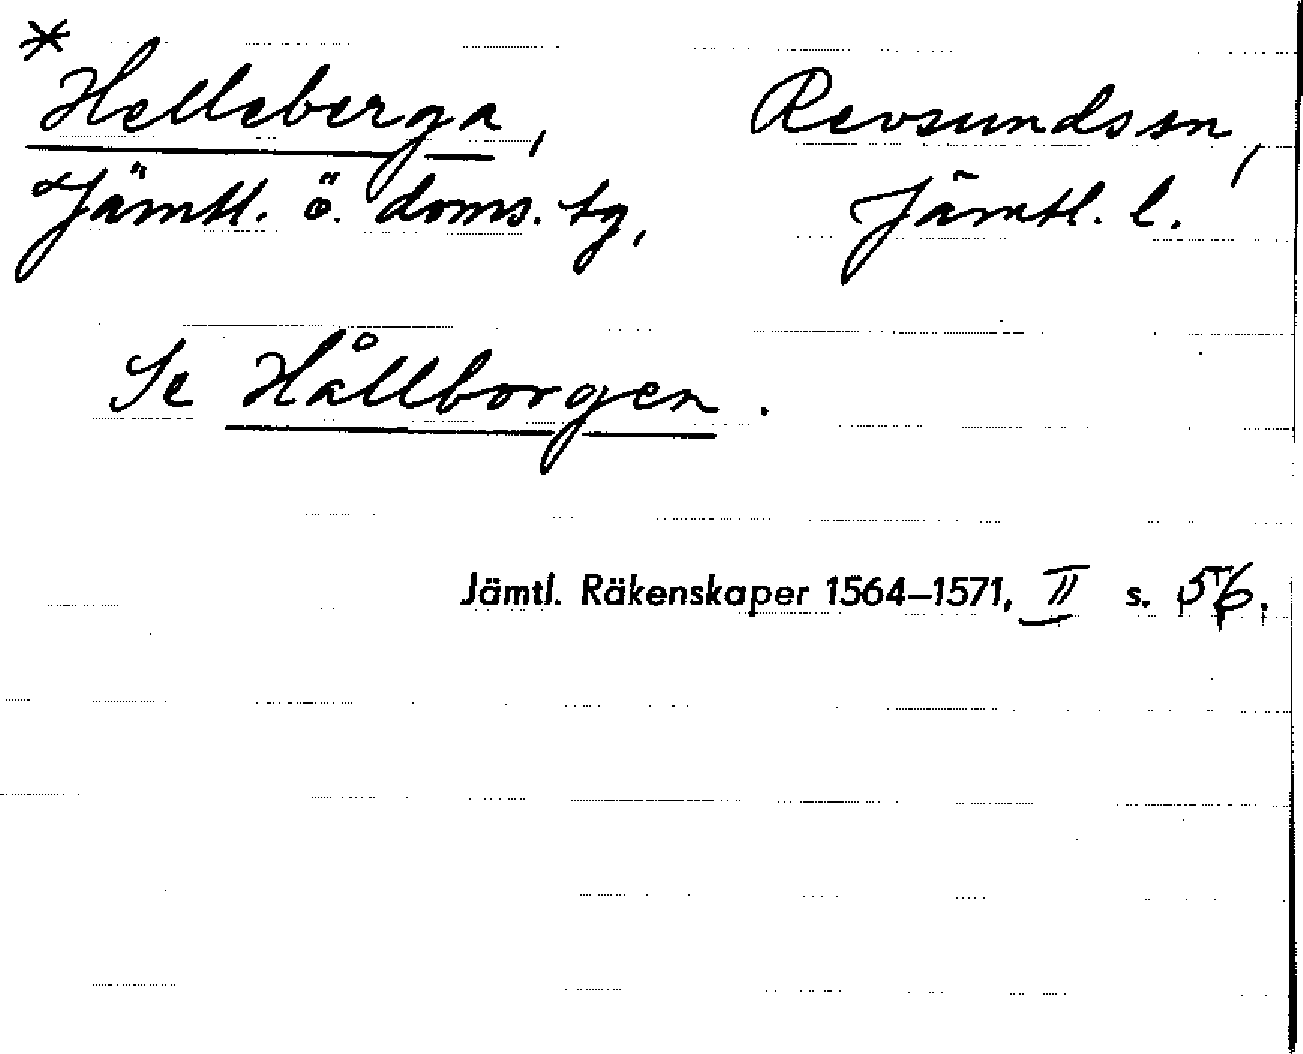 * Helleberga, Revsunds sn,
Jämtl. ö. doms. tg, Jämtl. l.
Se Hållborgen.
Jämtl. Räkenskaper 1564–1571, II s. 56.